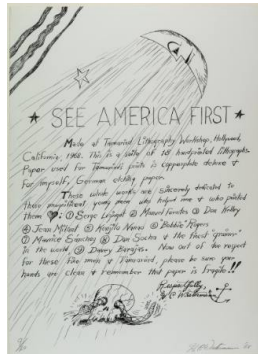 ★ SEE AMERICA FIRST ★
Made at Tamarind Lithography Workshop, Hollywood,
California, 1968. This is a suite of 18 handprinted lithographs.
Paper used for Tamarind's prints is copperplate deluxe &
for myself, German etching paper.
These works are sincerely dedicated to
these magnificent young men who helped me & who printed
them ♥: ① Serge Lozingot ② Manuel Fuentes ③ Don Kelley
④ Jean Milant ⑤ ⑥ "Robbie" Rogers
⑦ Maurice Sanchez ⑧ Dan Socha & the finest "grainer"
in the world ⑨ Danny. Now out of due respect
for these fine men & Tamarind, please be sure your
hands are clean & remember that paper is fragile!!